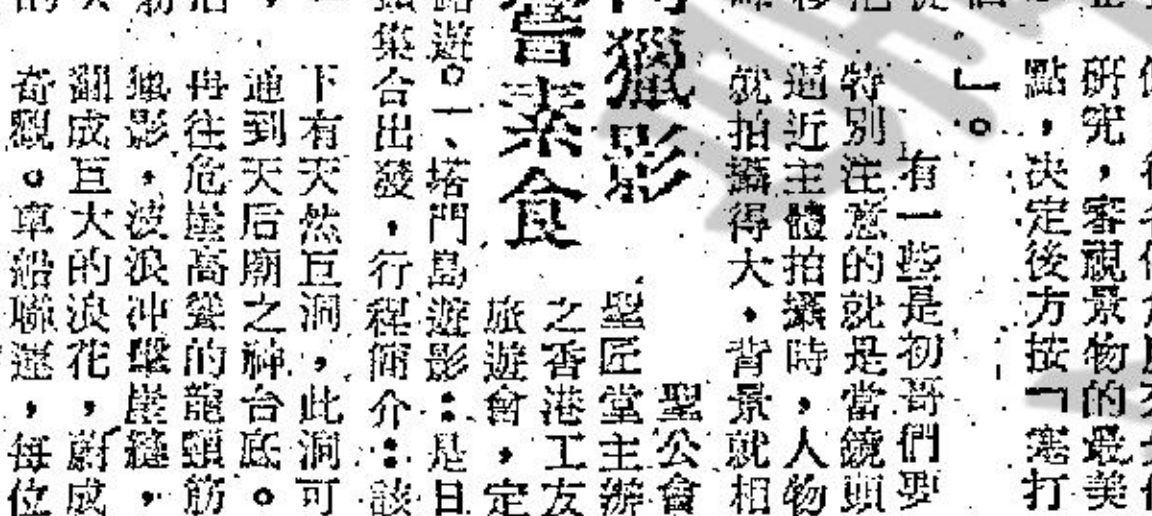 研究，審視景物的最美
點，决定後方按「塞打
」。
有一些是初哥們要
特別注意的就是當鏡頭
逼近主體拍攝時，人物
就拍攝得大，背景就相
獵影
素食
聖公會
聖匠堂主辦
之香港工友
旅遊會，定
遊。一、塔門島遊影：是日
集合出發，行程簡介：該
下有天然巨洞，此洞可
通到天后廟之神台底。
再往危崖高聳的龍頸筋
獵影，波浪冲擊崖縫，
翻成巨大的浪花，蔚成
奇觀。車船聯運，每位